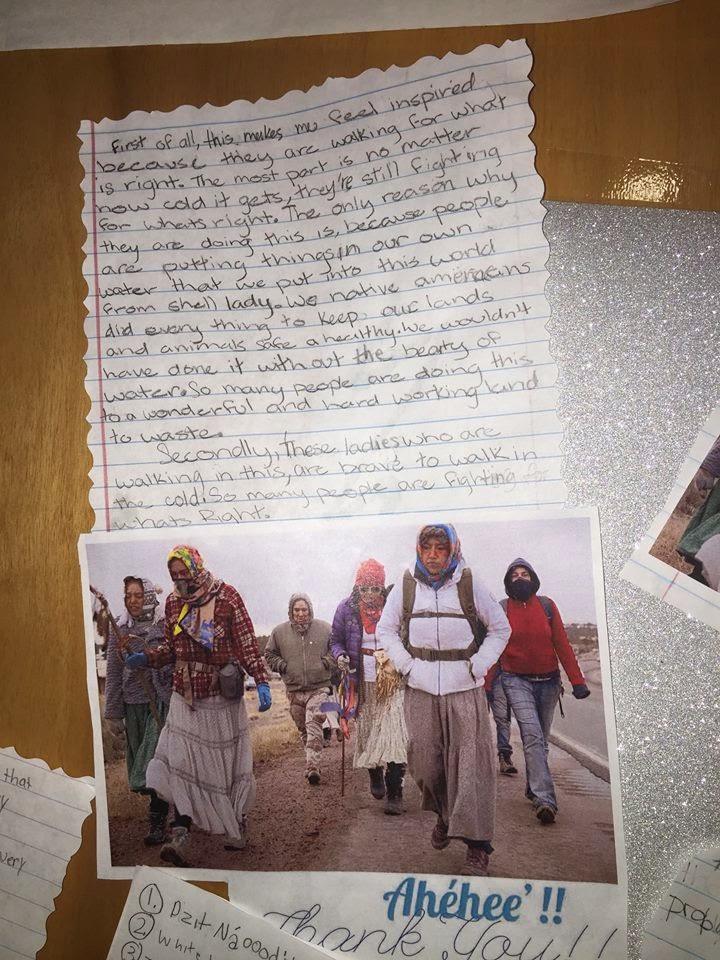 First of all, this makes me feel inspired
because they are walking for what
is right. The most part is no matter
how cold it gets, they're still fighting
for whats right. The only reason why
they are doing this is, because people
are putting things in our own
water that we put into this world
from shell lady. We native americans
did every thing to keep our lands
and animals safe a healthy. We wouldn't
have done it without the beaty of
water. So many people are doing this
to a wonderful and hard working land
to waste.
Secondly, These ladies who are
walking in this, are brave to walk in
the cold. So many people are fighting for
whats Right.
that
very
Ahéhee' !!
Thank You!!
① Dzit Náoodi
② White
③
probl